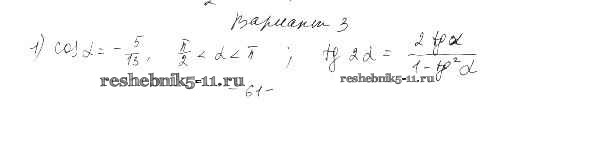 Вариант 3
1) cos α = - 5/13, π/2 < α < π ; tg 2α = 2 tg α / 1 - tg² α
reshebnik5-11.ru reshebnik5-11.ru
-61-